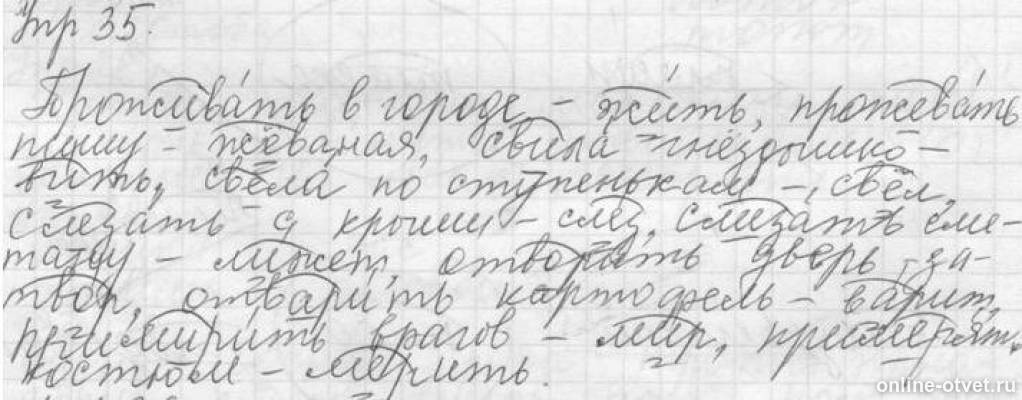 Упр 35.
Проживать в городе – жить, прожевать
пищу – жёваная, свила гнёздышко –
вить, свела по ступенькам – свёл,
слезать с крыши – слез, слизать сме-
тану – лижет, отворить дверь, за-
твор, отварить картофель – варит,
примирить врагов – мир, примерять
костюм – мерить.
online-otvet.ru